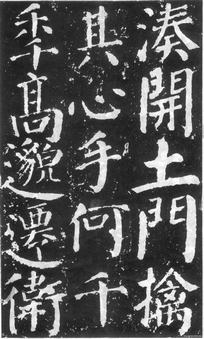 湊開土門擒
其心手何千
年高邈遷衛